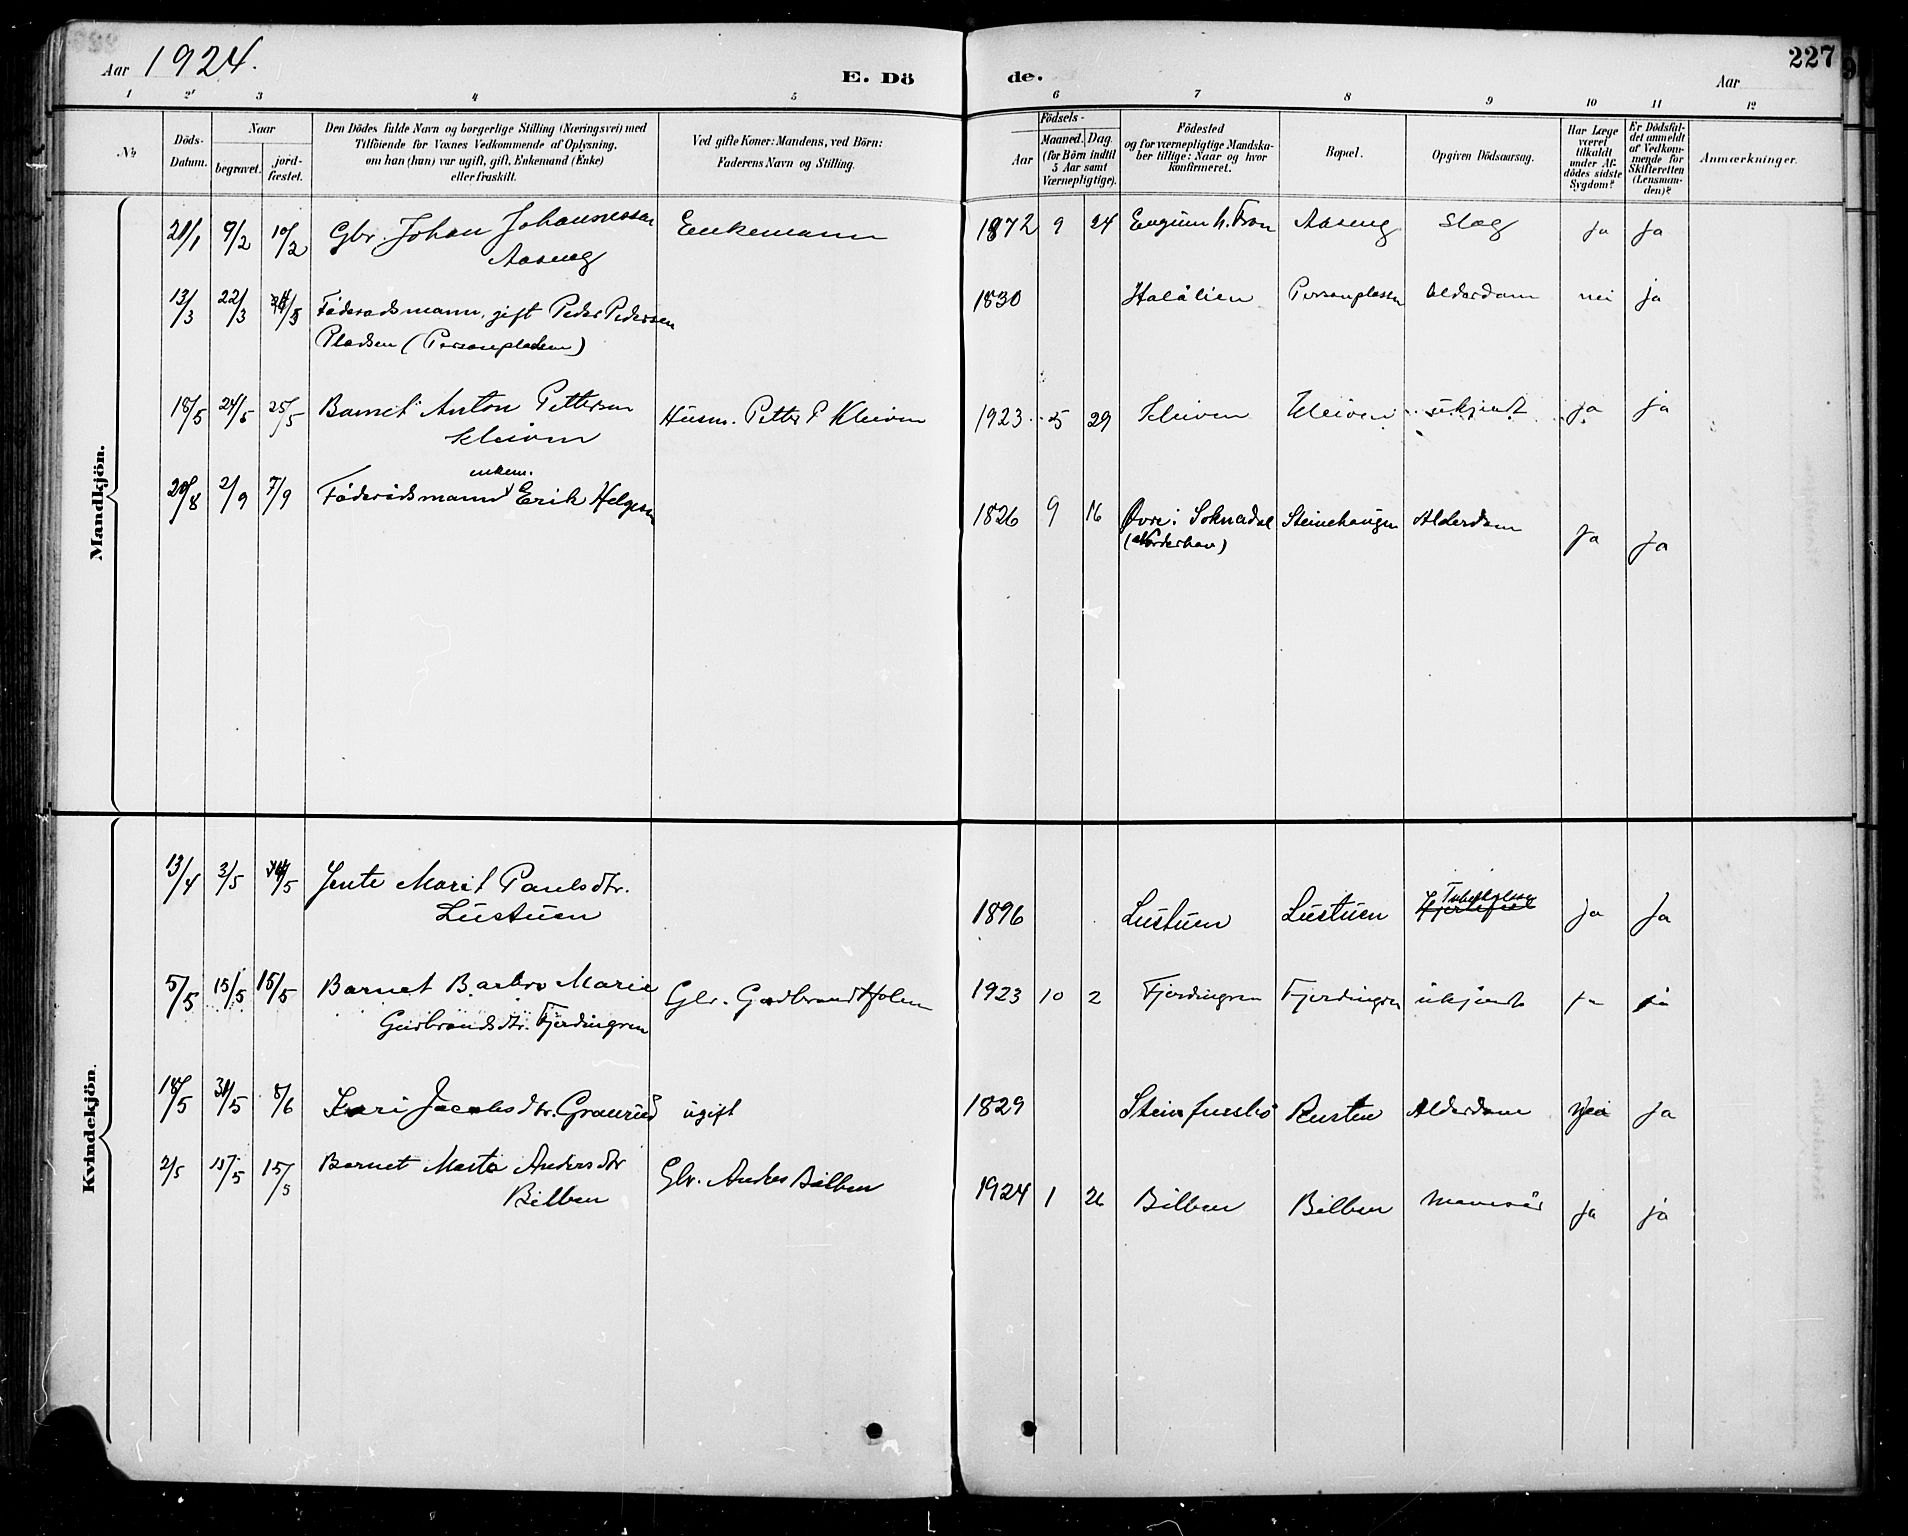 Aar 1924.
E. Döde.
Aar
227
1 2 3 4 5 6 7 8 9 10 11 12
№
Döds-Datum.
Naar
begravet.
jordfæstet.
Den Dödes fulde Navn og borgerlige Stilling (Næringsvei) med
Tilföiende for Voxnes Vedkommende af Oplysning,
om han (hun) var ugift, gift, Enkemand (Enke)
eller fraskilt.
Ved gifte Koner: Mandens, ved Börn:
Faderens Navn og Stilling.
Födsels-
Aar
Maaned. Dag.
(for Börn indtil
5 Aar samt
Værnepligtige).
Födested
og for værnepligtige Mandska-
ber tillige: Naar og hvor
konfirmeret.
Bopæl.
Opgiven Dödsaarsag.
Har Læge
været
tilkaldt
under Af-
dödes sidste
Sygdom?
Er Dödsfal-
det anmeldt
af Vedkom-
mende for
Skifteretten
(Lensman-
den)?
Anmærkninger.
Mandkjön.
21/1 9/2 10/2 Gbr. Johan Johannessen Enkemann 1872 9 24 h. Fron Aaseng slag ja ja
Aaseng
13/3 22/3 Föderaadsmann, gift Peder Pedersen 1830 Personplassen Alderdom nei ja
Pladsen (Personpladsen)
18/5 24/5 25/5 Barnet Anton Pettersen Husm. Petter P Kleiven 1923 5 29 Kleiven Kleiven ukjendt ja ja
Kleiven
enkem.
2/9 7/9 Föderaadsmann Erik Helgesen 1826 9 16 Øvre i Soknedal Steinehaugen Alderdom ja ja
(Norderhov)
Kvindekjön.
13/4 3/5 Jente Marit Paulsdtr. 1896 Lustuen Lustuen Hjertefeil Tuberkulose ja ja
Lustuen
5/5 15/5 15/5 Barnet Barbro Marie Gbr. Gudbrand Holen 1923 10 2 Fjerdingren Fjerdingren ukjendt ja ja
Gudbrandsdtr. Fjerdingren
18/5 31/5 8/6 Kari Jacobsdtr. Graurud ugift 1829 Rusten Alderdom nei ja
2/5 15/5 15/5 Barnet Marta Andersdtr Gbr. Anders Bilben 1924 1 26 Bilben Bilben Mavesår ja ja
Bilben